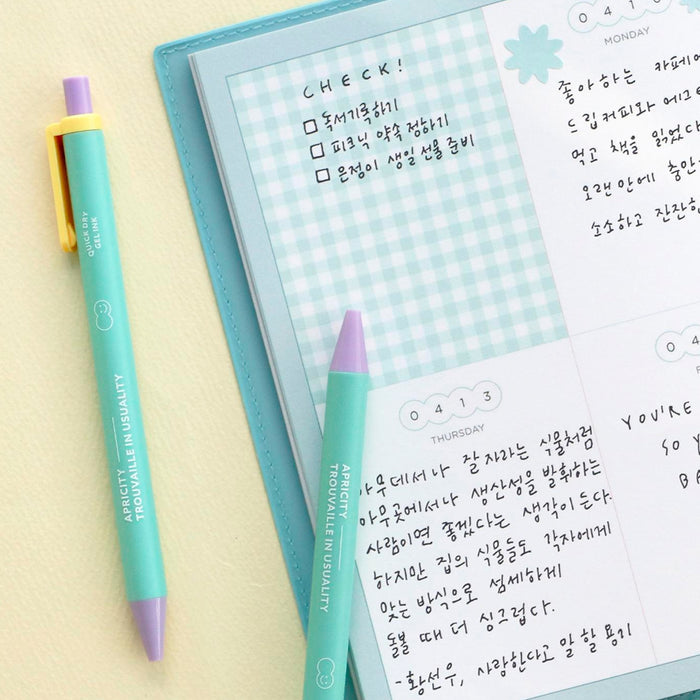 CHECK!
독서기록하기
피크닉 약속 정하기
은정이 생일 선물 준비
0 4 1
MONDAY
좋아하는 카페에
드립커피와 에그
먹고 책을 읽었다
오랜만에 충만
소소하고 잔잔
0 4 1 3
THURSDAY
아무데서나 잘 자라는 식물처럼
아무곳에서나 생산성을 발휘하는
사람이면 좋겠다는 생각이 든다.
하지만 집의 식물들도 각자에게
맞는 방식으로 섬세하게
돌볼 때 더 싱그럽다.
-황선우, 사랑한다고 말할 용기
0 4
YOU'RE
SO
QUICK DRY
GEL INK
APRICITY
TROUVAILLE IN USUALITY
APRICITY
TROUVAILLE IN USUALITY